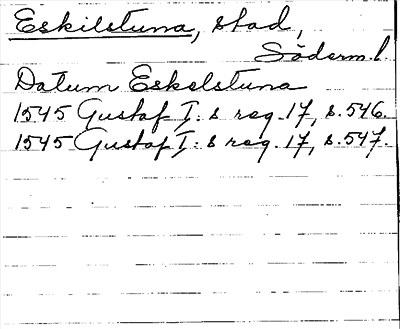 Eskilstuna, stad,
Söderm. l.
Datum Eskelstuna
1545 Gustaf I: s reg. 17, s. 546.
1545 Gustaf I: s reg. 17, s. 547.